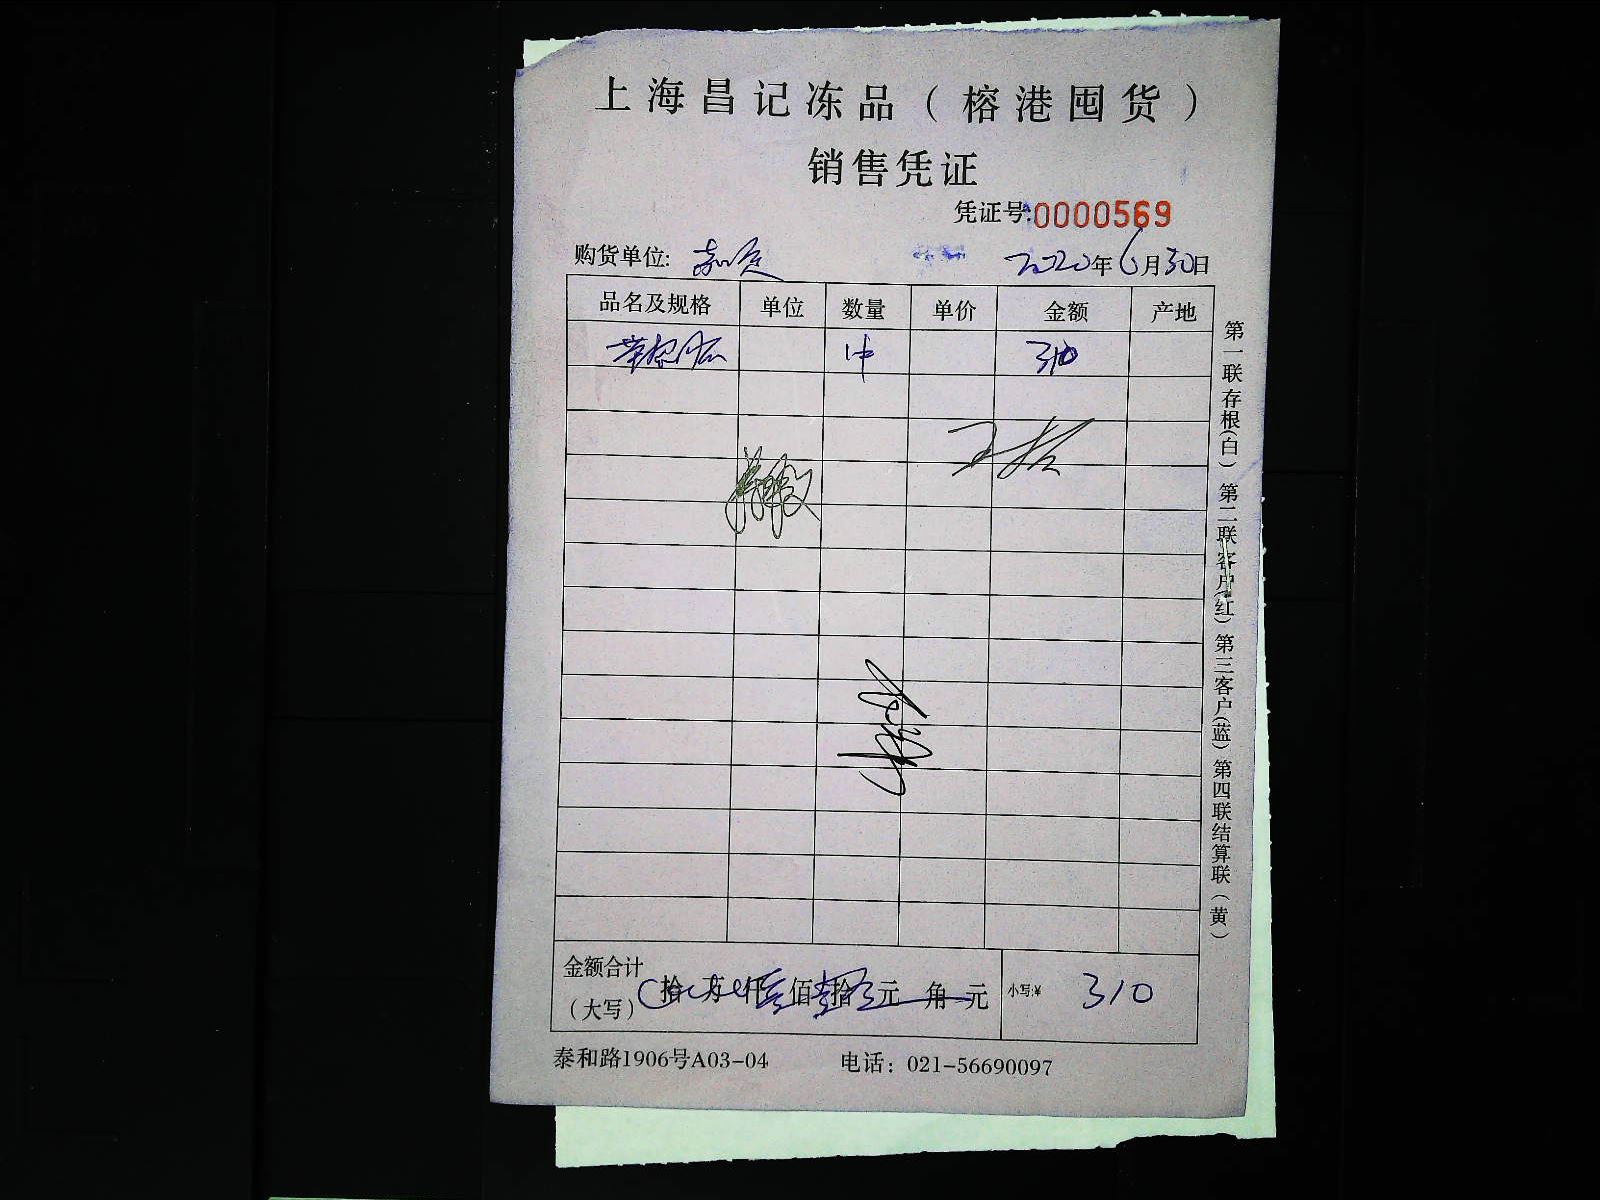 上海昌记冻品（榕港囤货）
销售凭证
凭证号:0000569
购货单位: 2020年6月30日
品名及规格 单位 数量 单价 金额 产地
1件 310
金额合计
（大写） 拾 万 仟 叁佰 壹拾 元 角 元 小写:¥ 310
泰和路1906号A03-04 电话：021-56690097
第一联存根(白) 第二联客户(红) 第三客户(蓝) 第四联结算联(黄)